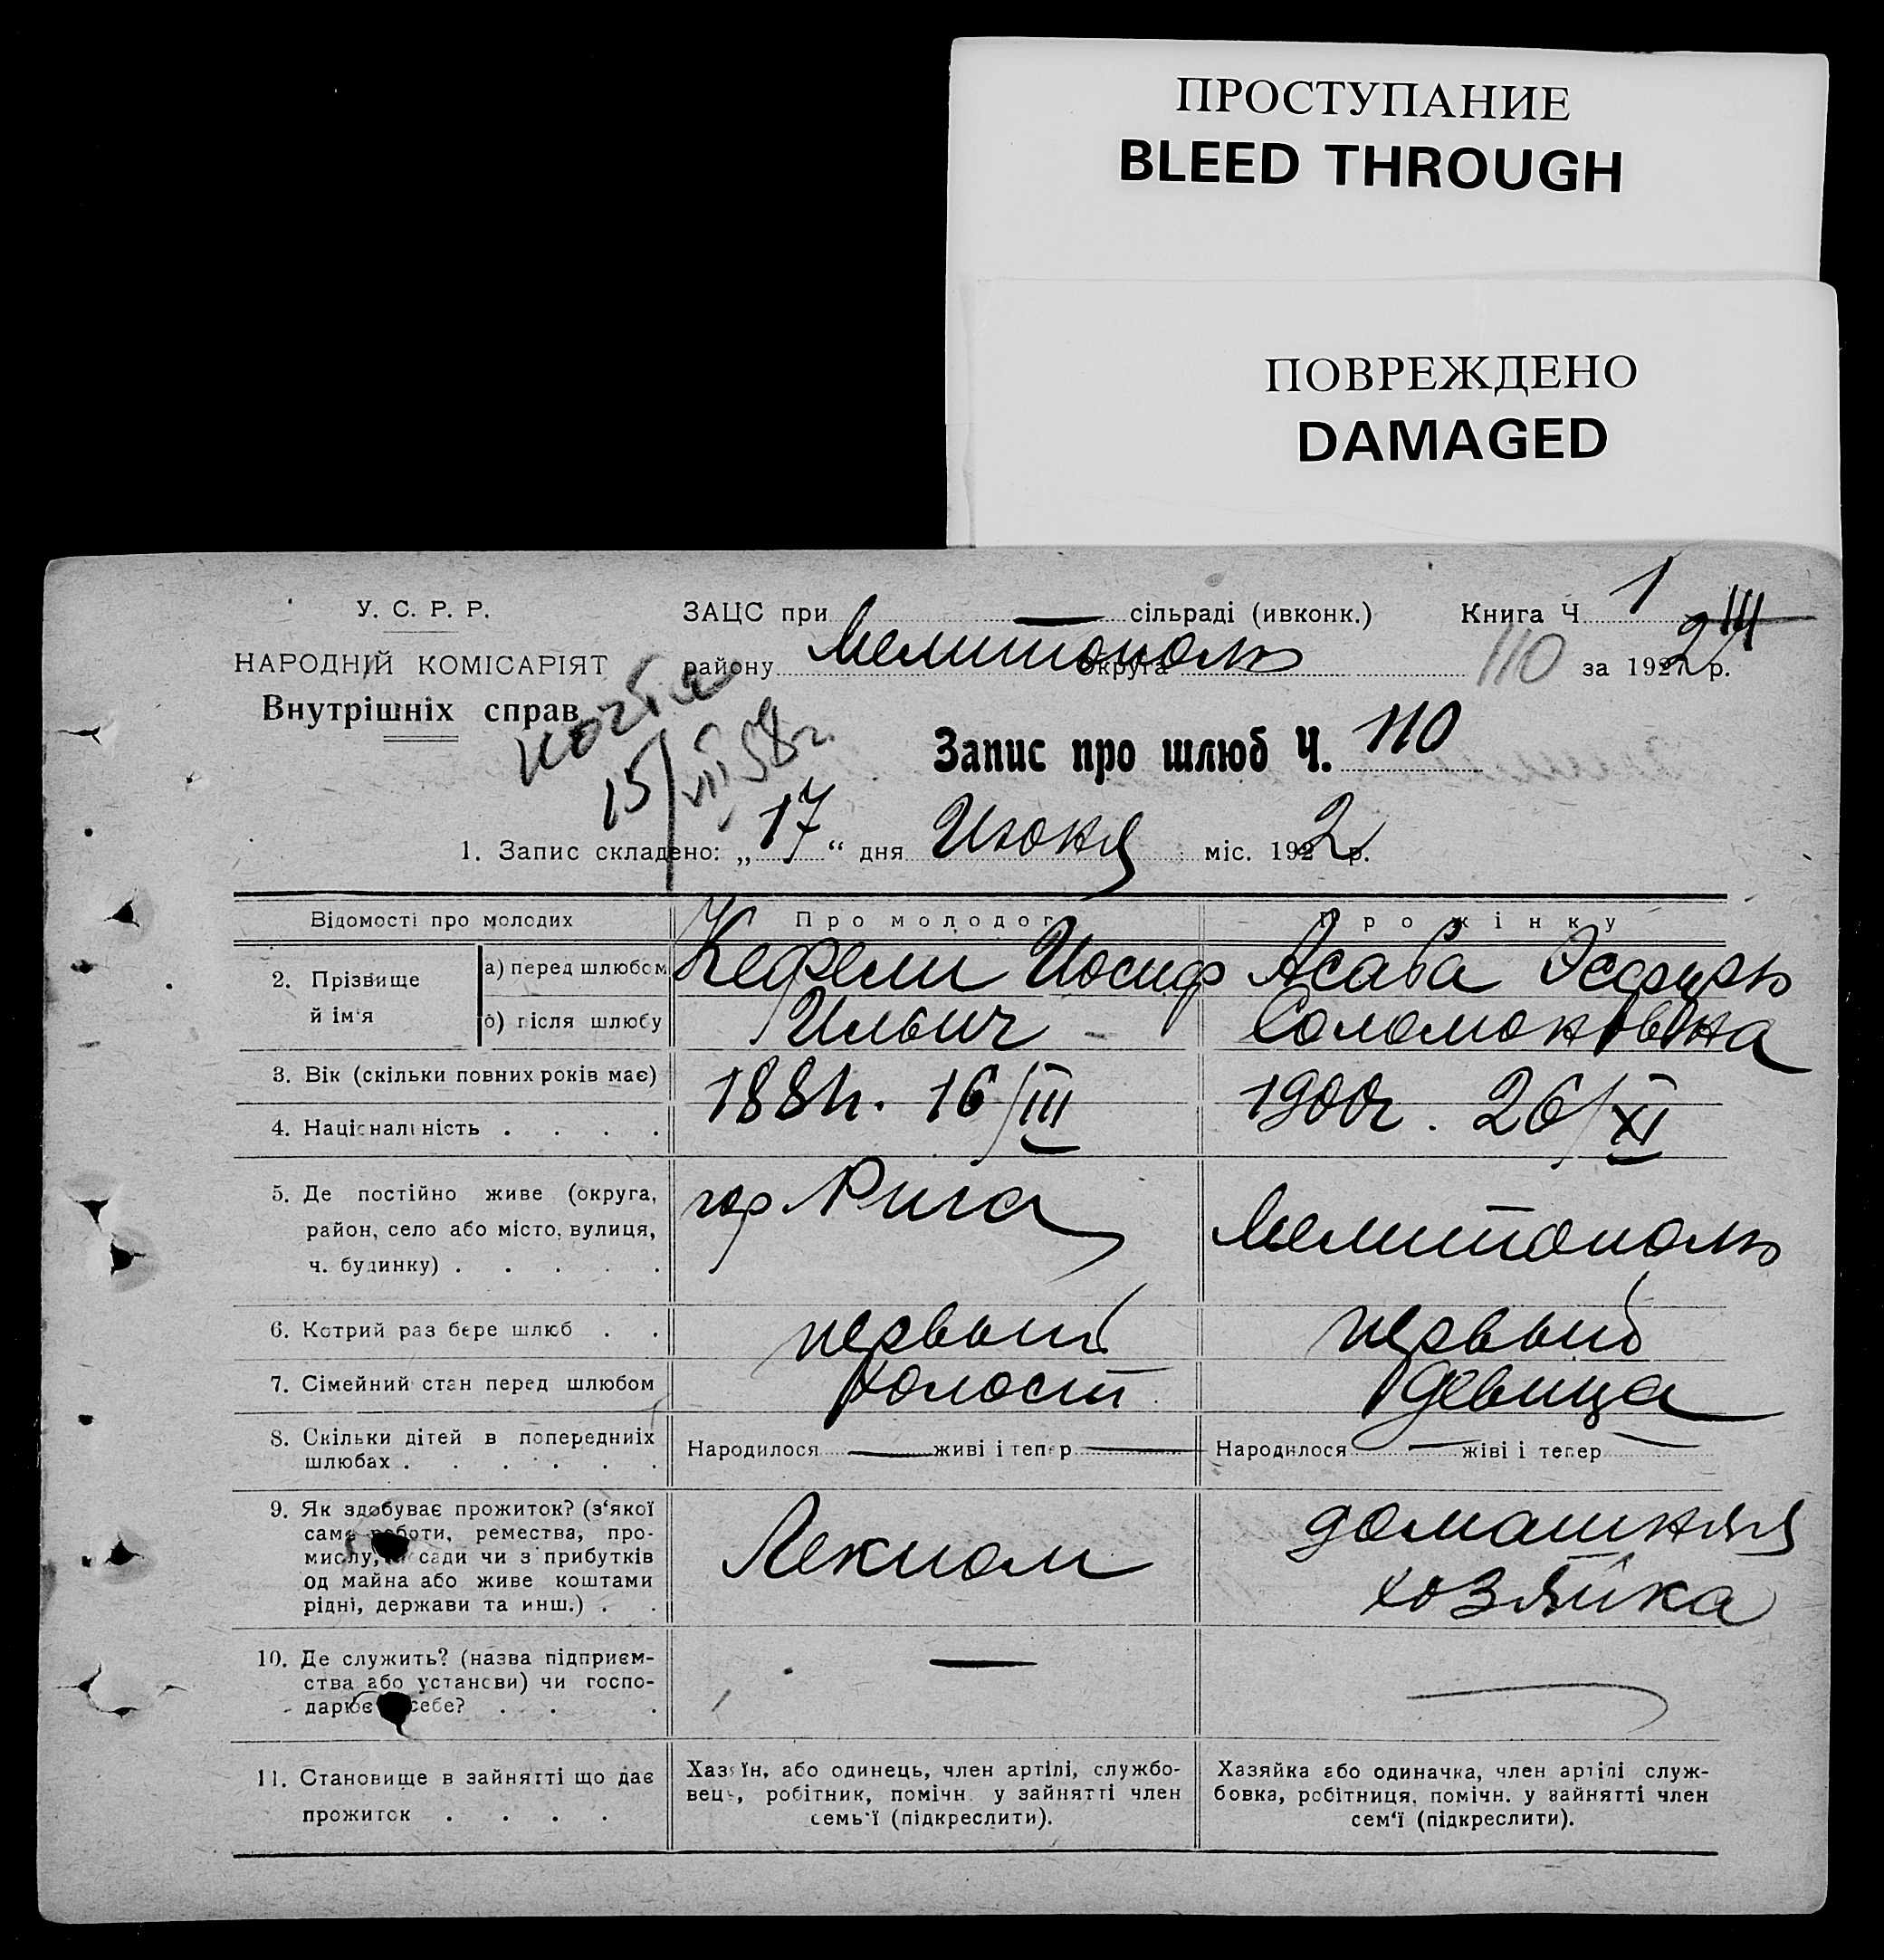 ПРОСТУПАНИЕ
BLEED THROUGH
ПОВРЕЖДЕНО
DAMAGED
У. С. Р. Р.
НАРОДНІЙ КОМІСАРІЯТ
Внутрішніх справ
ЗАЦС при — сільраді (ивконк.) Книга Ч 1
району Мелитополь округа 110 за 1922 р.
копія
15/VII 58 г.
Запис про шлюб Ч. 110
1. Запис складено: „17“ дня Июня міс. 1922 р.
Відомості про молодих Про молодог Про жінку
2. Прізвище й ім'я а) перед шлюбом Кефели Иосиф Асаба Эсфирь
б) після шлюбу Ильич Соломоновна
3. Вік (скільки повних років має) 1881г. 16/III 1900г. 26/XI
4. Національність . . . .
5. Де постійно живе (округа, гор Рига Мелитополь
район, село або місто, вулиця,
ч. будинку) . . . . .
6. Котрий раз бере шлюб . . первый первый
7. Сімейний стан перед шлюбом холост девица
8. Скільки дітей в попередніх Народилося — живі і тепер — Народилося — жіві і тепер —
шлюбах . . . . . .
9. Як здобуває прожиток? (з‘якої
саме роботи, ремества, про-
мислу, посади чи з прибутків
од майна або живе коштами
рідні, держави та инш.) . .
домашняя
хозяйка
10. Де служить? (назва підприєм-
ства або установи) чи госпо-
дарює себе? . . . — —
11. Становище в зайнятті що дає
прожиток . . . .
Хазяїн, або одинець, член артілі, службо-
вець, робітник, помічн. у зайнятті член
семь'ї (підкреслити).
Хазяйка або одиначка, член артілі служ-
бовка, робітниця, помічн. у зайнятті член
сем‘ї (підкреслити).